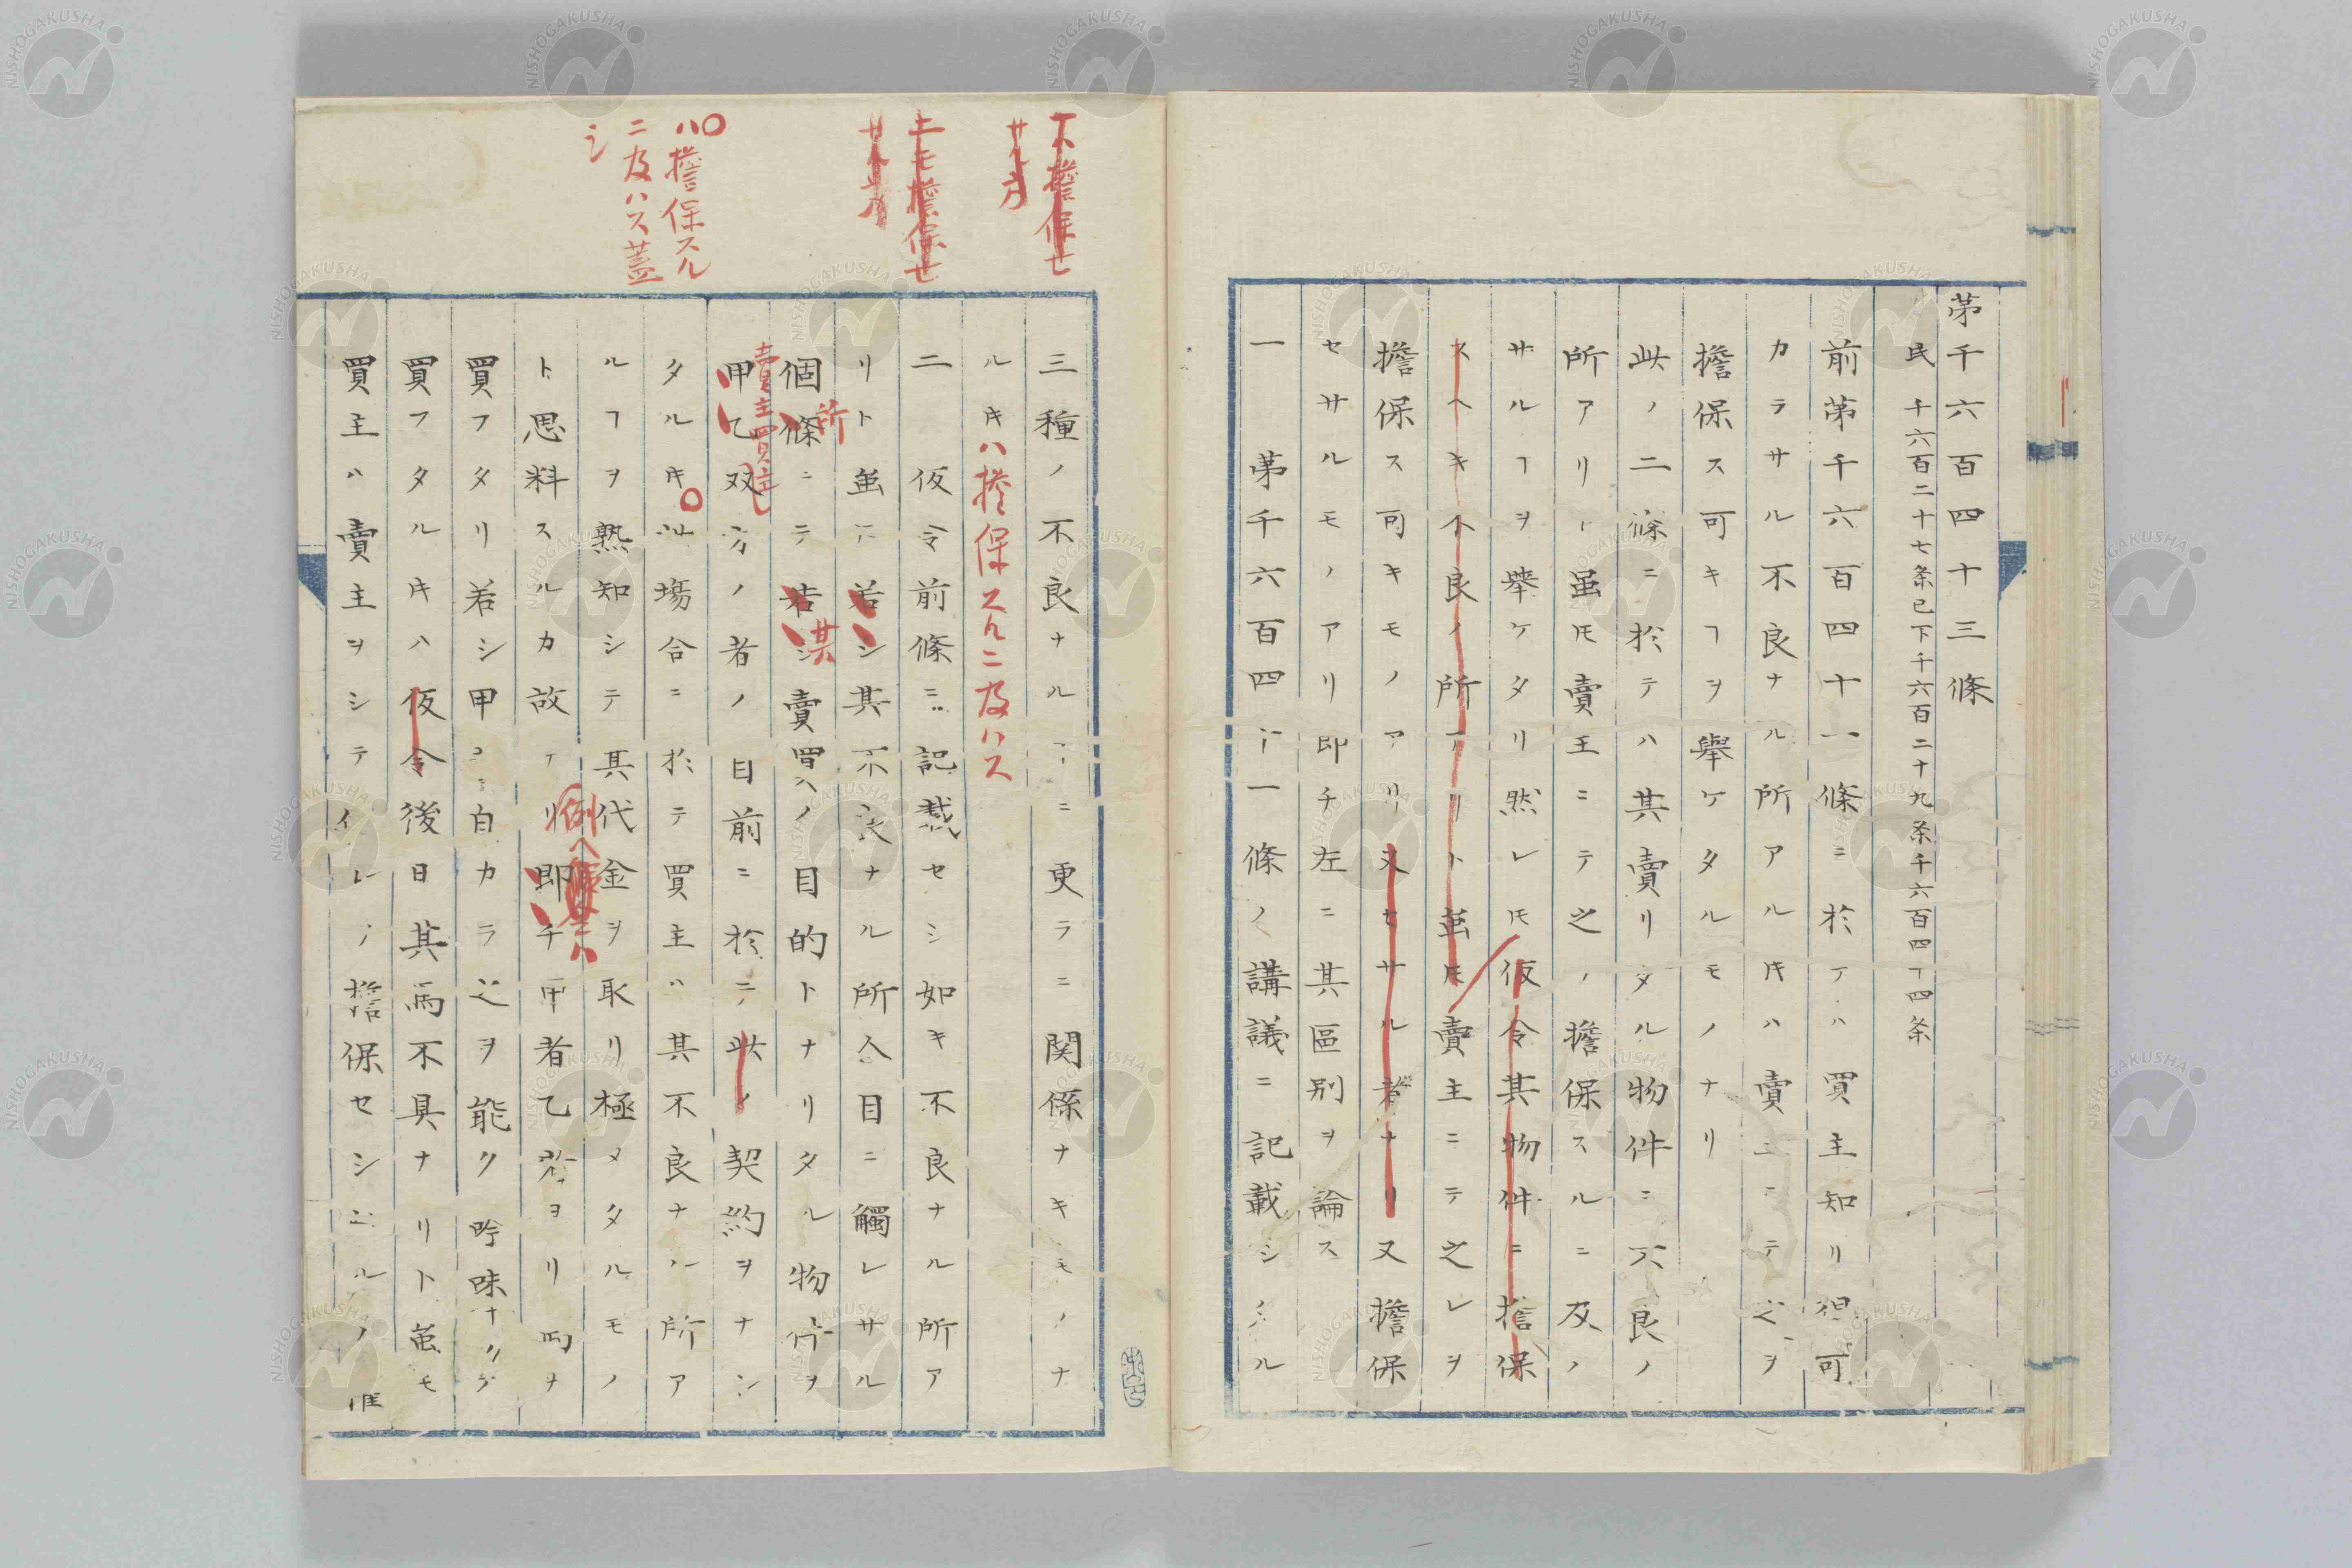 第千六百四十三條
民 千六百二十七条已下千六百二十九条千六百四十四条
前第千六百四十一條ニ於テハ買主知リ得可
カラサル不良ナル所アルキハ賣主ニテ之ヲ
擔保ス可キヿヲ擧ケタルモノナリ
此ノ二條ニ於テハ其賣リタル物件ニ不良ノ
所アリト虽𪜈賣主ニテ之ノ擔保スルニ及ハ
サルヿヲ擧ケタリ然レ𪜈仮令其物件ニ擔保
スヘキ不良ノ所アリト虽𪜈賣主ニテ之レヲ
擔保ス可キモノアリ又セサル者ナリ又擔保
セサルモノアリ即チ左ニ其區別ヲ論ス
一 第千六百四十一條ノ講議ニ記載シタル
三種ノ不良ナルヿニ更ラニ関係ナキモノナ
ルキハ擔保スルニ及ハス
二 仮令前條ニ記載セシ如キ不良ナル所ア
リト虽𪜈若シ其不良ナル所人目ニ觸レサル
個條ニテ若シ賣買ノ目的トナリタル物件ヲ
所
其
甲乙双方ノ者ノ目前ニ於テ此ノ契約ヲナシ
賣主買主
タルキ此場合ニ於テ買主ハ其不良ナル所ア
ルヿヲ熟知シテ其代金ヲ取リ極メタルモノ
ト思料スルカ故ナリ即チ甲者乙者ヨリ馬ヲ
例ヘハ
買フタリ若シ甲者自カラ之ヲ能ク吟味ナクシテ
買フタルキハ仮令後日其馬不具ナリト虽モ
買主ハ賣主ヲシテ之レヲ擔保セシムルノ権
不擔保セ
サル方
ニモ擔保セ
サル方
〇
ハ擔保スル
ニ及ハス蓋
シ